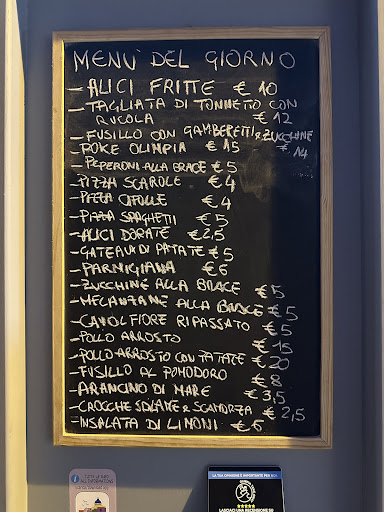 MENU' DEL GIORNO
- ALICI FRITTE € 10
- TAGLIATA DI TONNETTO CON
RUCOLA € 12
- FUSILLO CON GAMBERETTI & ZUCCHINE
€ 14
- POKE OLIMPIA € 15
- PEPERONI ALLA BRACE € 5
- PIZZA SCAROLE € 4
- PIZZA CIPOLLE € 4
- PIZZA SPAGHETTI € 5
- ALICI DORATE € 2,5
- GATEAU DI PATATE € 5
- PARMIGIANA € 6
- ZUCCHINE ALLA BRACE € 5
- MELANZANE ALLA BRACE € 5
- CAVOLFIORE RIPASSATO € 5
- POLLO ARROSTO € 15
- POLLO ARROSTO CON PATATE € 20
- FUSILLO AL POMODORO € 8
- ARANCINO DI MARE € 3,5
- CROCCHE' SALAME & SCAMORZA € 2,5
- INSALATA DI LIMONI € 5
LA TUA OPINIONE È IMPORTANTE PER NOI!
LASCIACI UNA RECENSIONE SU